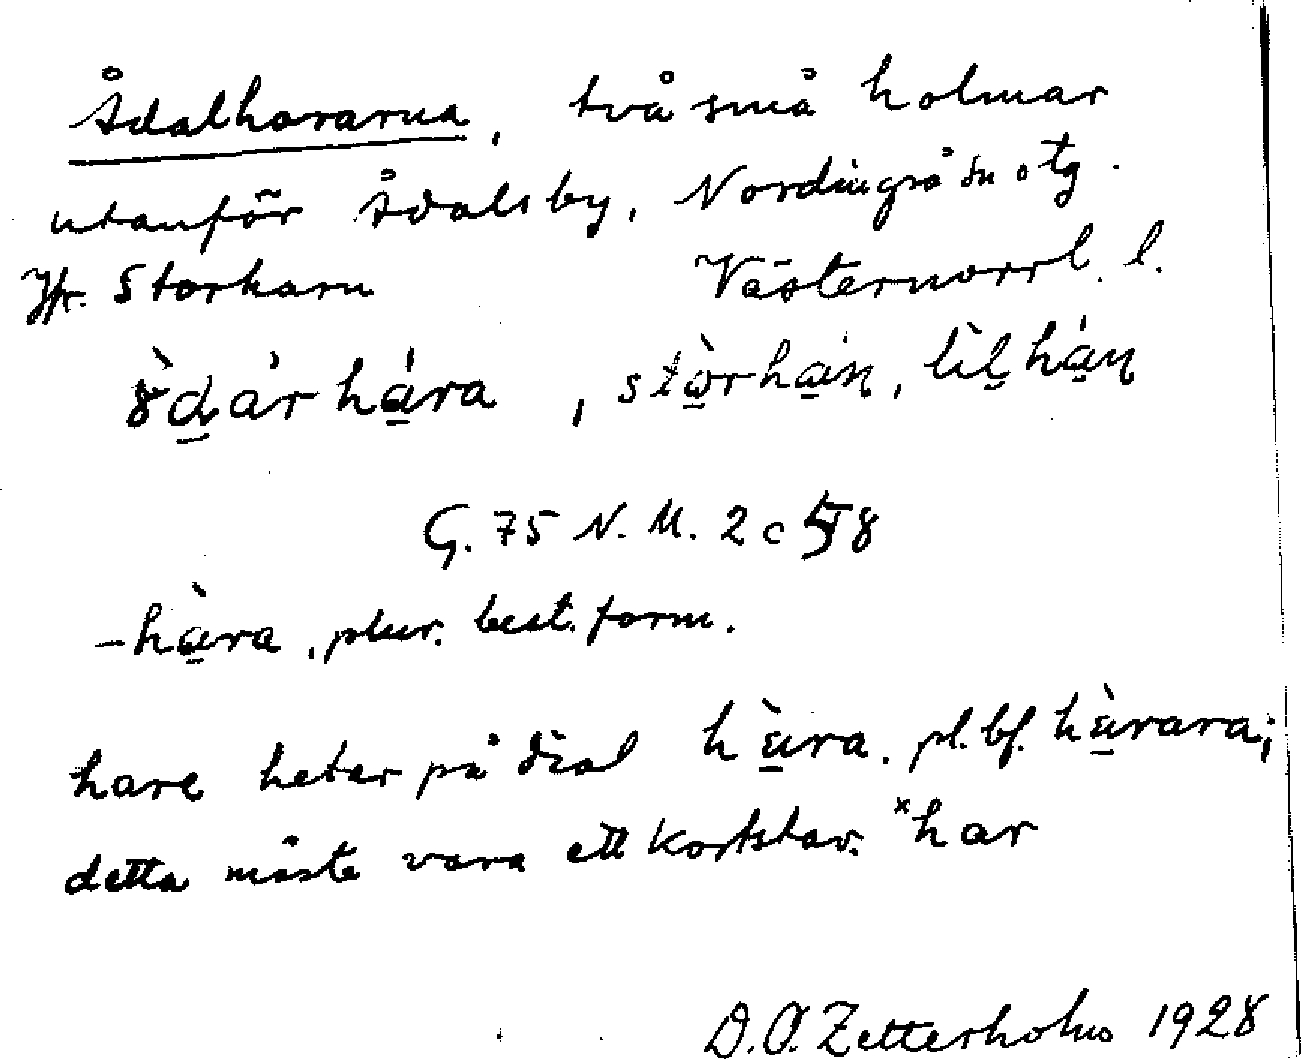 Ådalhararna, två små holmar
utanför Ådalsby, Nordingrå sn o tg.
Jfr. Storharn Västernorrl. l.
hàra, stòrhán, lìlhán
G. 75 N. M. 2 c 8
-hàra, plur. best. form.
hare heter på dial hàra. pl. bf. hàrara;
detta måste vara ett kortstav. *har
D.O. Zetterholm 1928